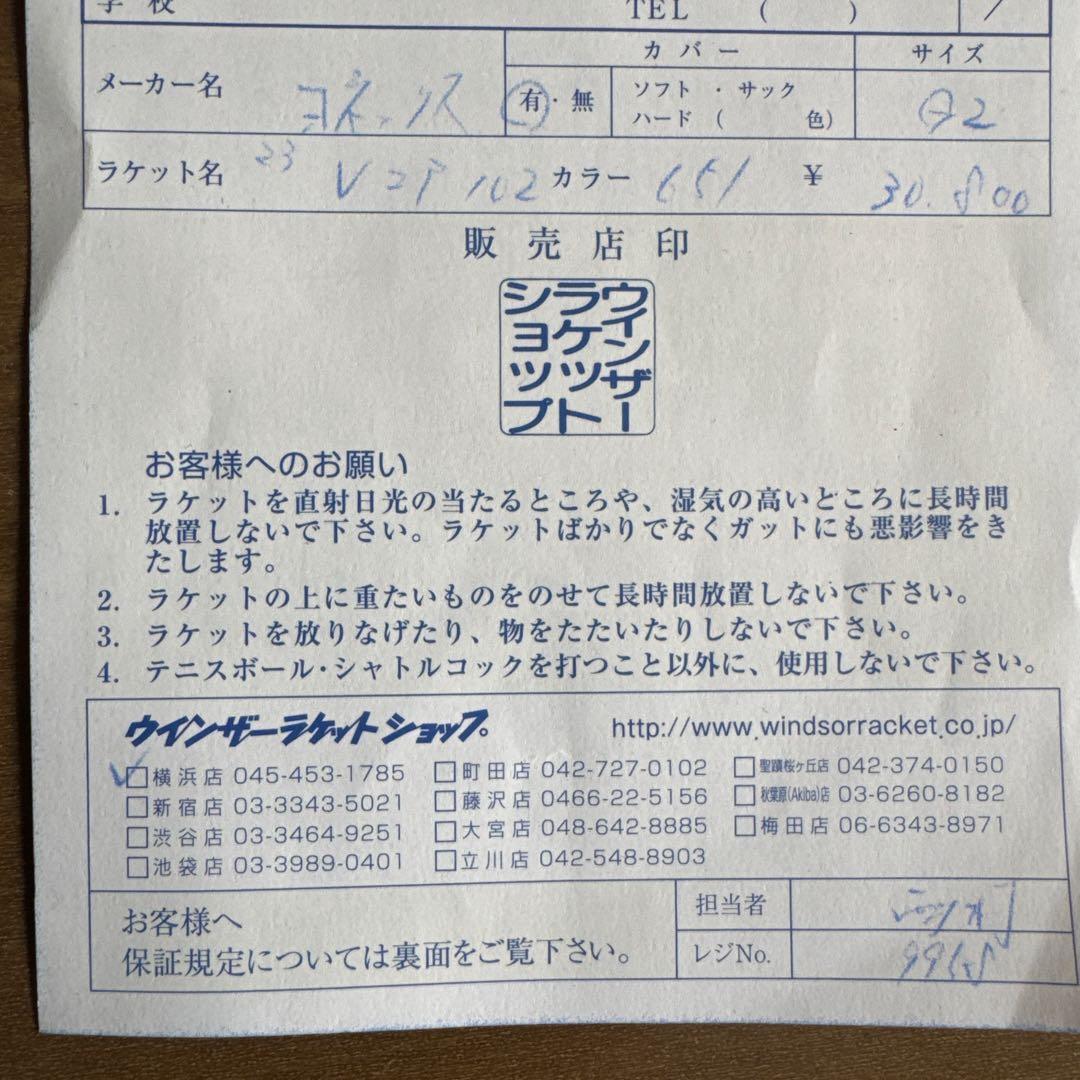 学 校 TEL ( ) /
メーカー名 ヨネックス
カバー
有・無
ソフト ・ サック
ハード ( 色)
サイズ
G2
ラケット名 23 Vコア 102 カラー 651 ¥ 30.800
販売店印
ウインザー
ラケット
ショップ
お客様へのお願い
1. ラケットを直射日光の当たるところや、湿気の高いところに長時間
放置しないで下さい。ラケットばかりでなくガットにも悪影響をき
たします。
2. ラケットの上に重たいものをのせて長時間放置しないで下さい。
3. ラケットを放りなげたり、物をたたいたりしないで下さい。
4. テニスボール・シャトルコックを打つこと以外に、使用しないで下さい。
ウインザーラケットショップ。 http://www.windsorracket.co.jp/
横浜店 045-453-1785 町田店 042-727-0102 聖蹟桜ヶ丘店 042-374-0150
新宿店 03-3343-5021 藤沢店 0466-22-5156 秋葉原(Akiba)店 03-6260-8182
渋谷店 03-3464-9251 大宮店 048-642-8885 梅田店 06-6343-8971
池袋店 03-3989-0401 立川店 042-548-8903
お客様へ
保証規定については裏面をご覧下さい。
担当者
レジNo.